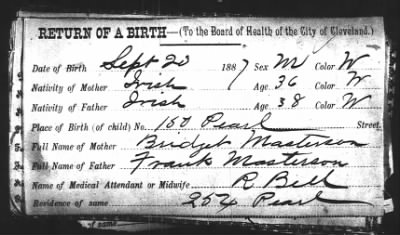 RETURN OF A BIRTH—(To the Board of Health of the City of Cleveland.)
Date of Birth Sept 20 1887 Sex M Color W
Nativity of Mother Irish Age 36 Color W
Nativity of Father Irish Age 38 Color W
Place of Birth (of child) No. 150 Pearl Street
Full Name of Mother Bridget Masterson
Full Name of Father Frank Masterson
Name of Medical Attendant or Midwife R Bell
Residence of same 254 Pearl